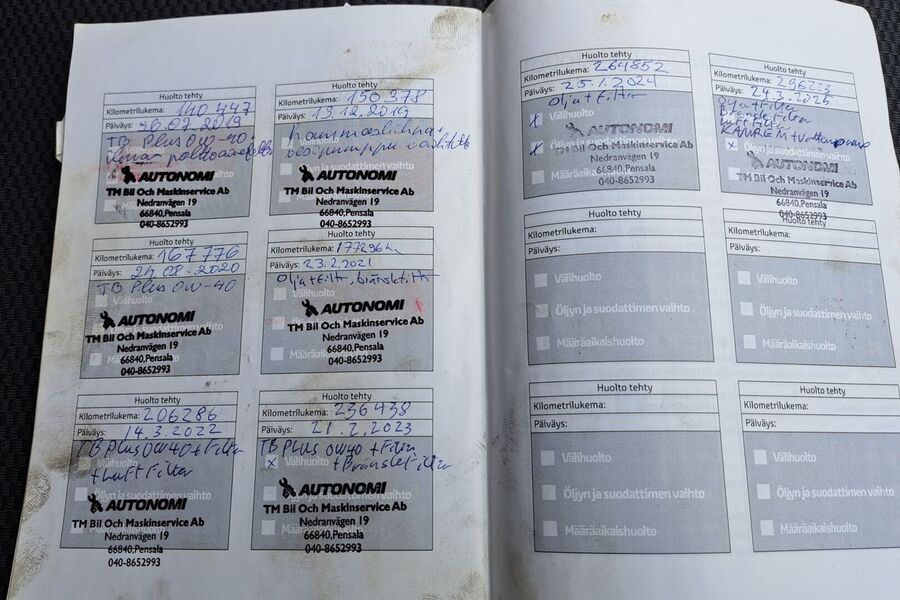 Huolto tehty
Kilometrilukema: 140 447
Päiväys: 26.02.2019
TB Plus OW-40.
AUTONOMI
TM Bil Och Maskinservice Ab
Nedranvägen 19
66840,Pensala
040-8652993
Huolto tehty
Kilometrilukema: 150 378
Päiväys: 13.12.2019
Öljyn ja suodattimen vaihto
AUTONOMI
TM Bil Och Maskinservice Ab
Nedranvägen 19
66840,Pensala
040-8652993
Huolto tehty
Kilometrilukema: 167 776
Päiväys: 24.08-2020
TB Plus OW-40
Välihuolto
Öljyn ja suodattimen vaihto
AUTONOMI
TM Bil Och Maskinservice Ab
Nedranvägen 19
66840,Pensala
040-8652993
Huolto tehty
Kilometrilukema: 177296
Päiväys: 23.2.2021
Olja + Filter, bränslefilter
AUTONOMI
TM Bil Och Maskinservice Ab
Nedranvägen 19
66840,Pensala
040-8652993
Huolto tehty
Kilometrilukema: 206286
Päiväys: 14.3.2022
TB Plus OW40 + Filter
+ Luft Filter
Öljyn ja suodattimen vaihto
AUTONOMI
TM Bil Och Maskinservice Ab
Nedranvägen 19
66840,Pensala
040-8652993
Huolto tehty
Kilometrilukema: 236438
Päiväys: 21.2.2023
TB Plus OW40 + Filter
x Välihuolto + Bränsle Filter
AUTONOMI
TM Bil Och Maskinservice Ab
Nedranvägen 19
66840,Pensala
040-8652993
Huolto tehty
Kilometrilukema: 264852
Päiväys: 25.1.2024
Olja + Filter
x Välihuolto
x Öljyn ja suodattimen vaihto
Määräaikaishuolto
AUTONOMI
TM Bil Och Maskinservice Ab
Nedranvägen 19
66840,Pensala
040-8652993
Huolto tehty
Kilometrilukema: 296223
Päiväys: 24.3.2025
Olja + Filter
Bränsle Filter
Luft Filter
KAMREM + Vattenpump
x Öljyn ja suodattimen vaihto
Määräaikaishuolto
AUTONOMI
TM Bil Och Maskinservice Ab
Nedranvägen 19
66840,Pensala
040-8652993
Huolto tehty
Kilometrilukema:
Päiväys:
Välihuolto
Öljyn ja suodattimen vaihto
Määräaikaishuolto
Huolto tehty
Kilometrilukema:
Päiväys:
Välihuolto
Öljyn ja suodattimen vaihto
Määräaikaishuolto
Huolto tehty
Kilometrilukema:
Päiväys:
Välihuolto
Öljyn ja suodattimen vaihto
Määräaikaishuolto
Huolto tehty
Kilometrilukema:
Päiväys:
Välihuolto
Öljyn ja suodattimen vaihto
Määräaikaishuolto